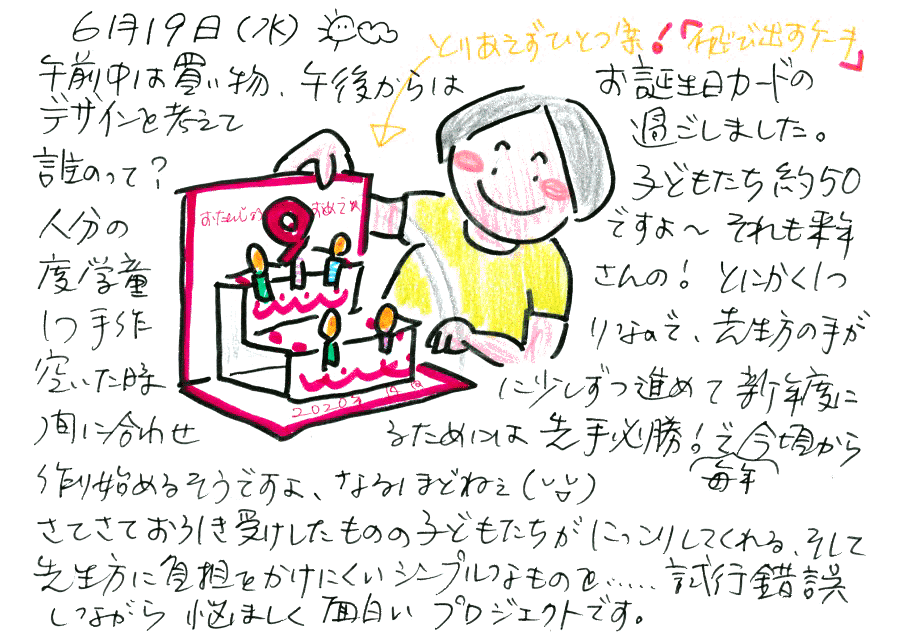 6月19日(水)
とりあえずひとつ案!「飛び出すケーキ」
午前中は買い物、午後からは お誕生日カードの
デザインを考えて 過ごしました。
誰のって? 子どもたち約50
人分の ですよ〜 それも来年
度学童 さんの! とにかく1つ
1つ手作 りなので、先生方の手が
空いた時 に少しずつ進めて新年度に
間に合わせ るためには 先手必勝!で今頃から
毎年
作り始めるそうですよ、なるほどねぇ
さてさてお引き受けしたものの子どもたちがにっこりしてくれる、そして
先生方に負担をかけにくいシンプルなものを……試行錯誤
しながら 悩ましく 面白い プロジェクトです。
おたんじょう おめでとう
9
2020年